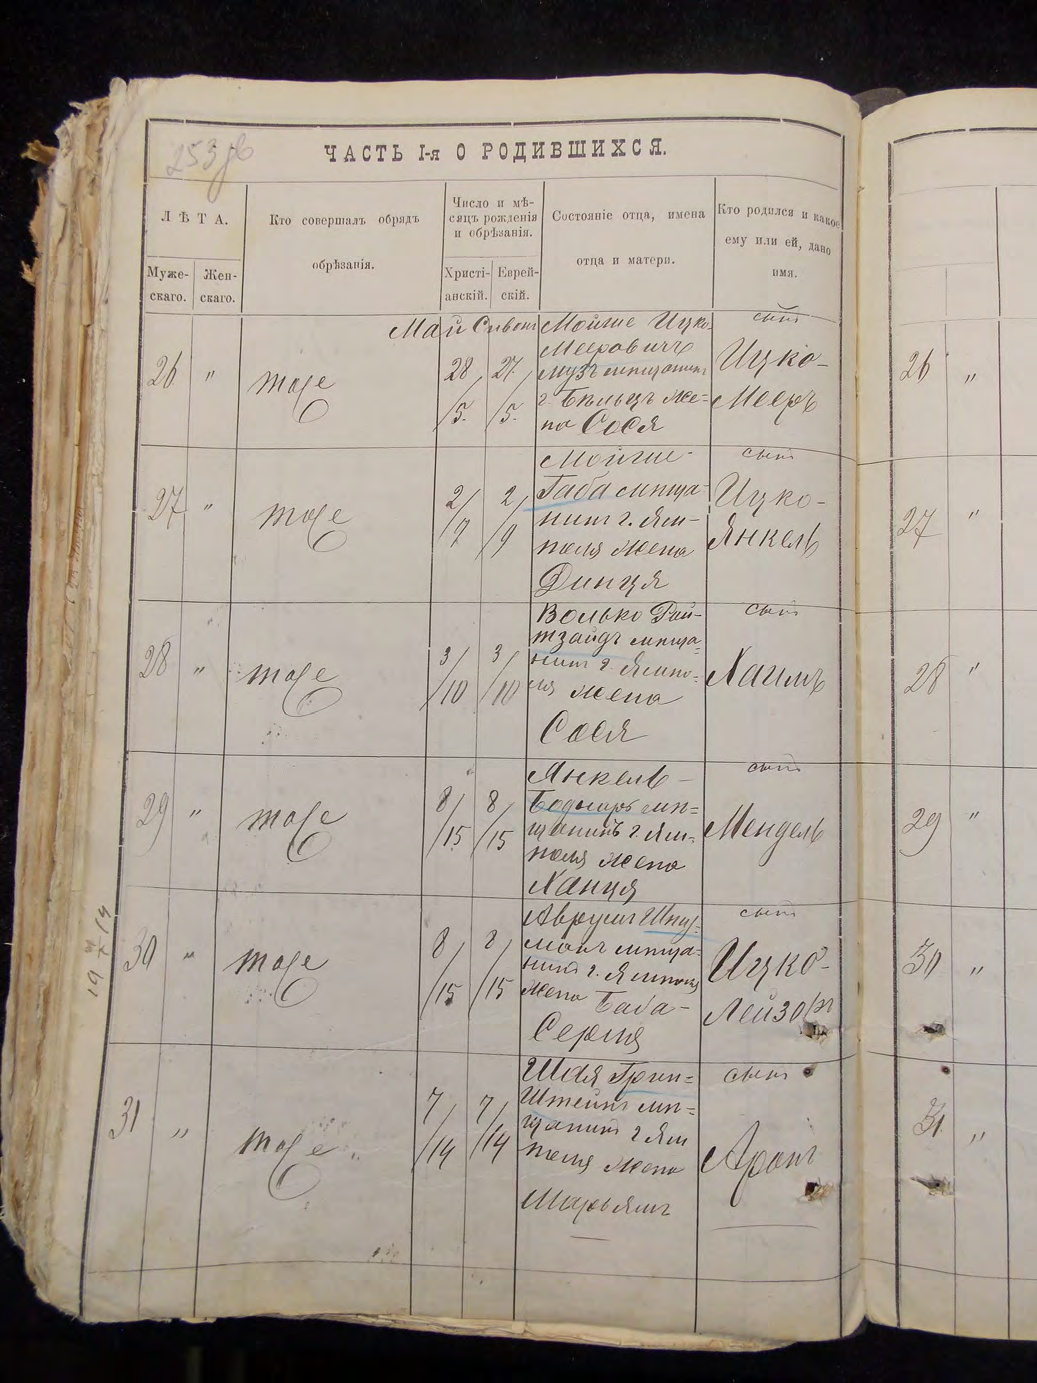 ЧАСТЬ I-я О РОДИВШИХСЯ.
Л Ѣ Т А.
Муже-
скаго.
Жен-
скаго.
Кто совершалъ обрядъ
обрѣзанія.
Число и мѣ-
сяцъ рожденія
и обрѣзанія.
Христі-
анскій.
Еврей-
скій.
Состояніе отца, имена
отца и матери.
Кто родился и какое
ему или ей, дано
имя.
Май Сивонъ
26
"
тоже
28/
/5.
27/
/5.
Мойше Ицко
Мееровичъ
мѣщанинъ
г. Бѣльцъ же-
на Сося
сынъ
Ицко-
Мееръ
26
"
27
"
тоже
2/
/9
2/
/9
Мойше-
Габа мѣща-
нинъ г. Ям-
поля жена
Динця
сынъ
Ицко-
Янкель
27
"
28
"
тоже
3/
/10
3/
/10
Волько Рай-
тзайдъ мѣща-
нинъ г. Ямпо-
ля жена
Сося
сынъ
Хаимъ
28
"
29
"
тоже
8/
/15
8/
/15
Янкель-
Боднаръ мѣ-
щанинъ г Ям-
поля жена
Ханця
сынъ
Мендель
29
"
30
"
тоже
8/
/15
8/
/15
Аврумъ Шпиг-
манъ мѣща-
нинъ г. Ямполя
жена Баба-
Серля
сынъ
Ицко-
Лейзоръ
30
"
31
"
тоже
7/
/14
7/
/14
Шая Грин-
штейнъ мѣ-
щанинъ г Ям
поля жена
Марьямъ
сынъ
Аронъ
31
"